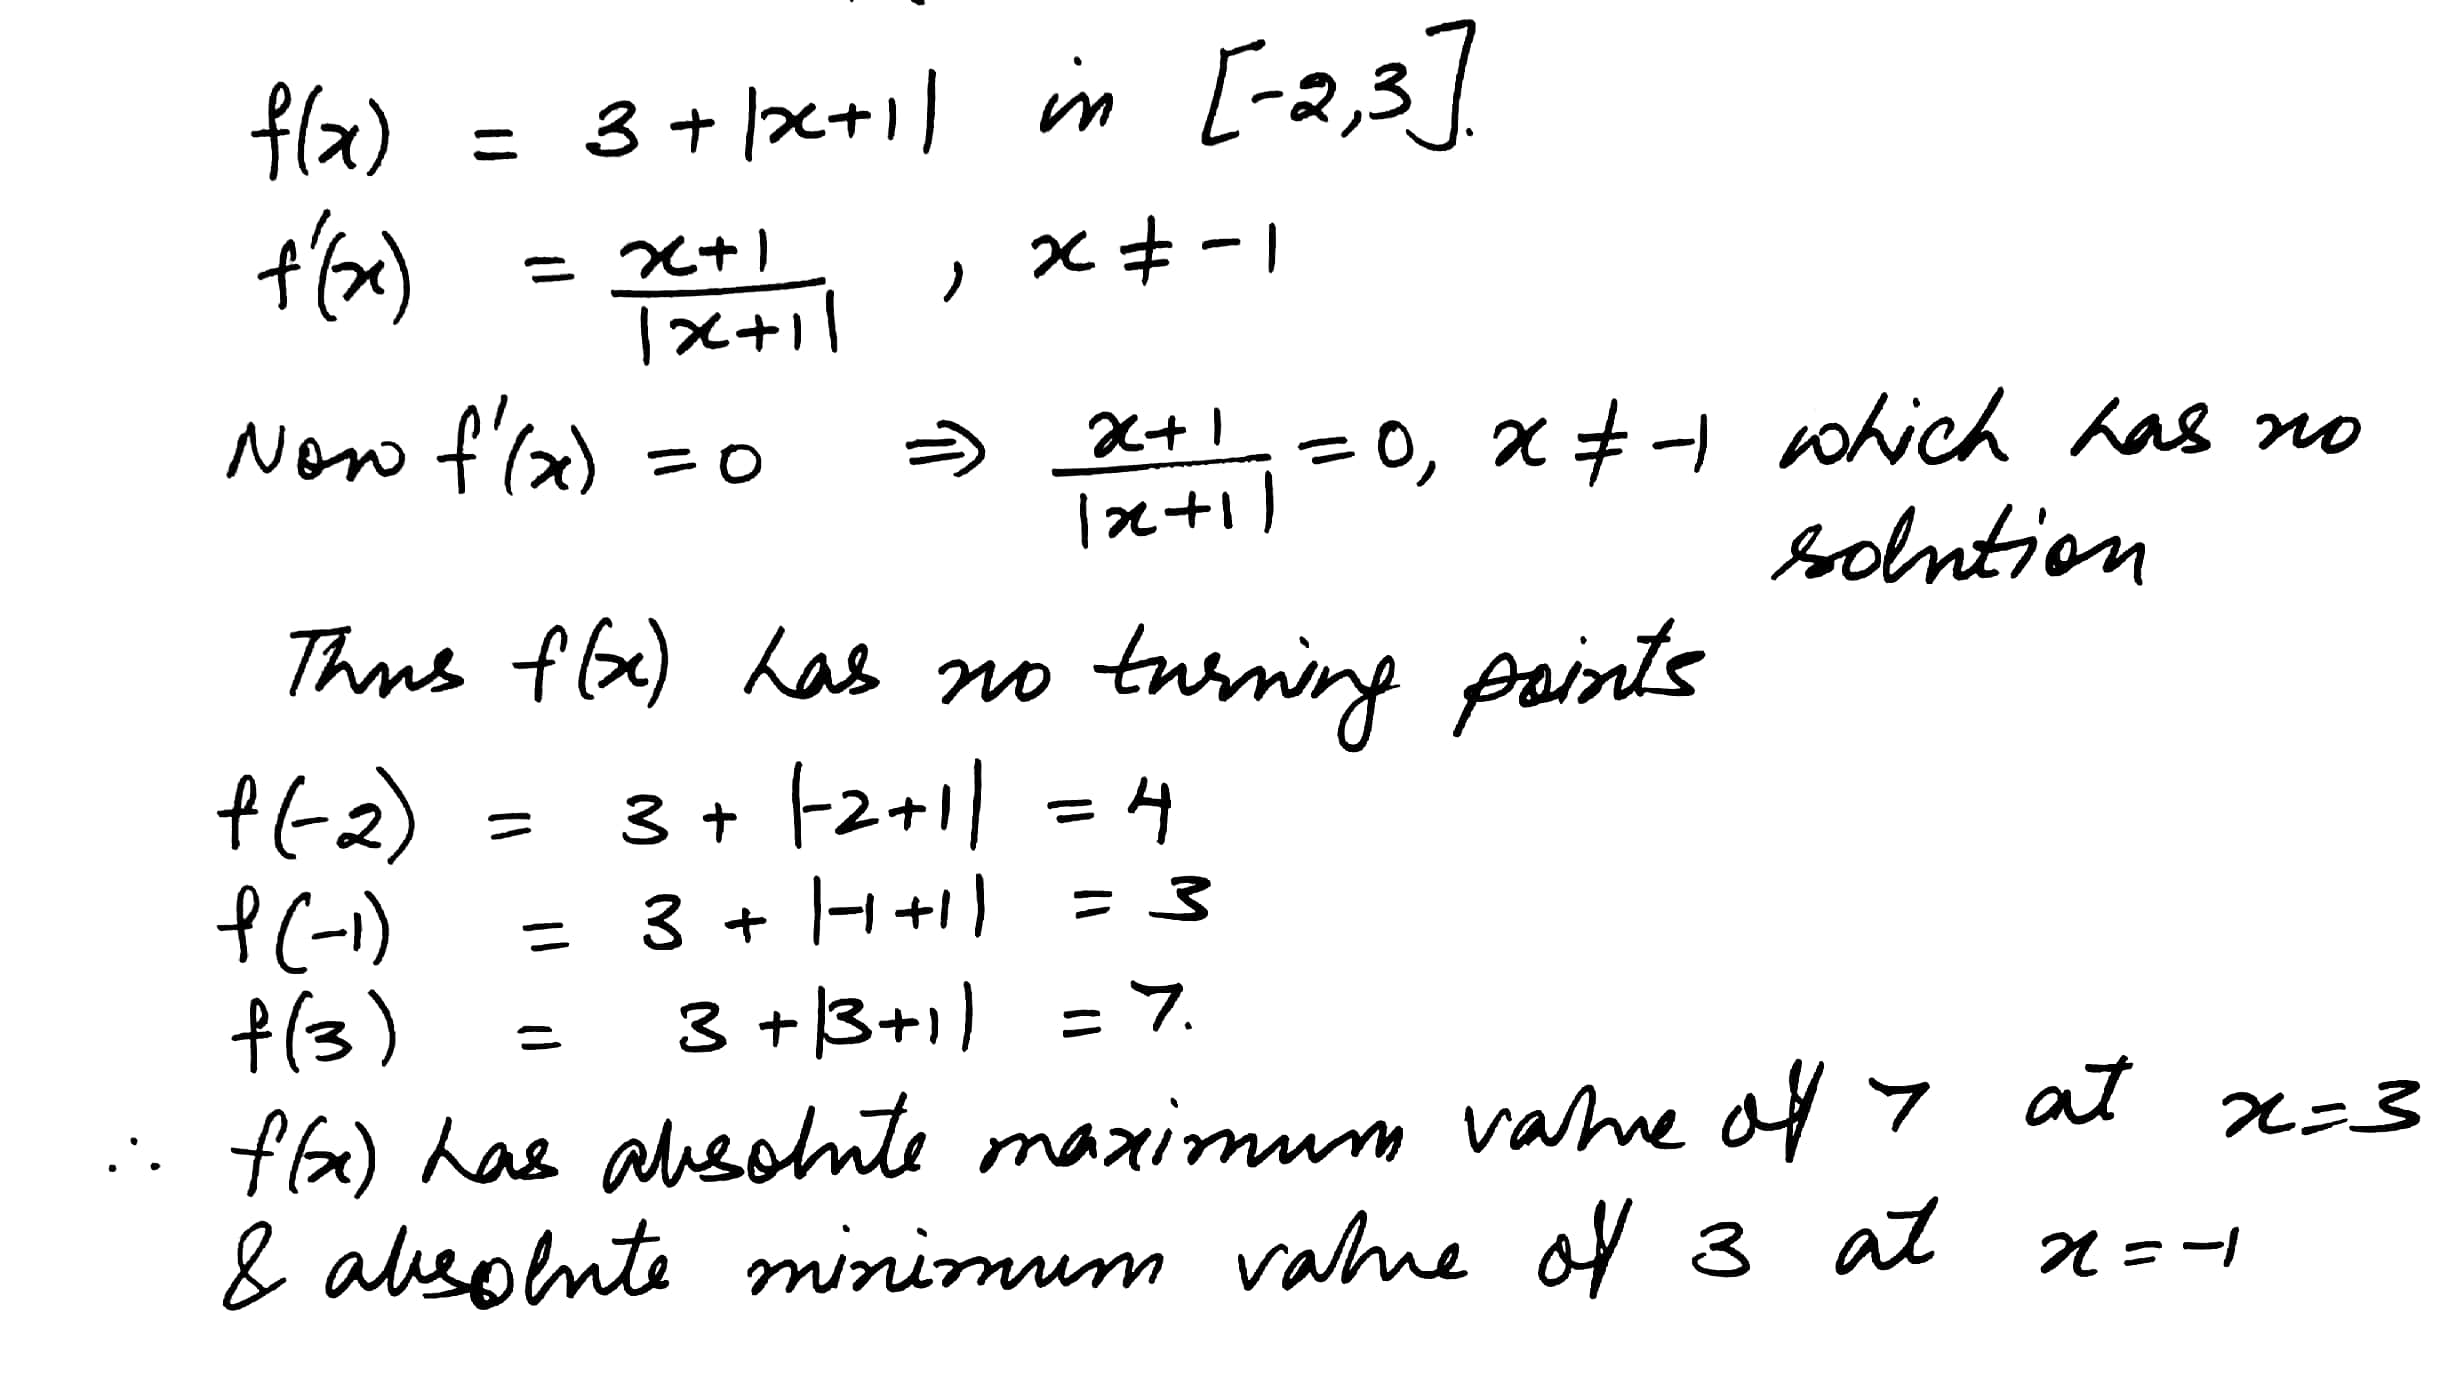 f(x) = 3 + |x+1| in [-2,3].
f'(x) = x+1 / |x+1| , x ≠ -1
Now f'(x) = 0 ⇒ x+1 / |x+1| = 0, x ≠ -1 which has no
solution
Thus f(x) has no turning points
f(-2) = 3 + |-2+1| = 4
f(-1) = 3 + |-1+1| = 3
f(3) = 3 + |3+1| = 7.
∴ f(x) has absolute maximum value of 7 at x=3
& absolute minimum value of 3 at x=-1